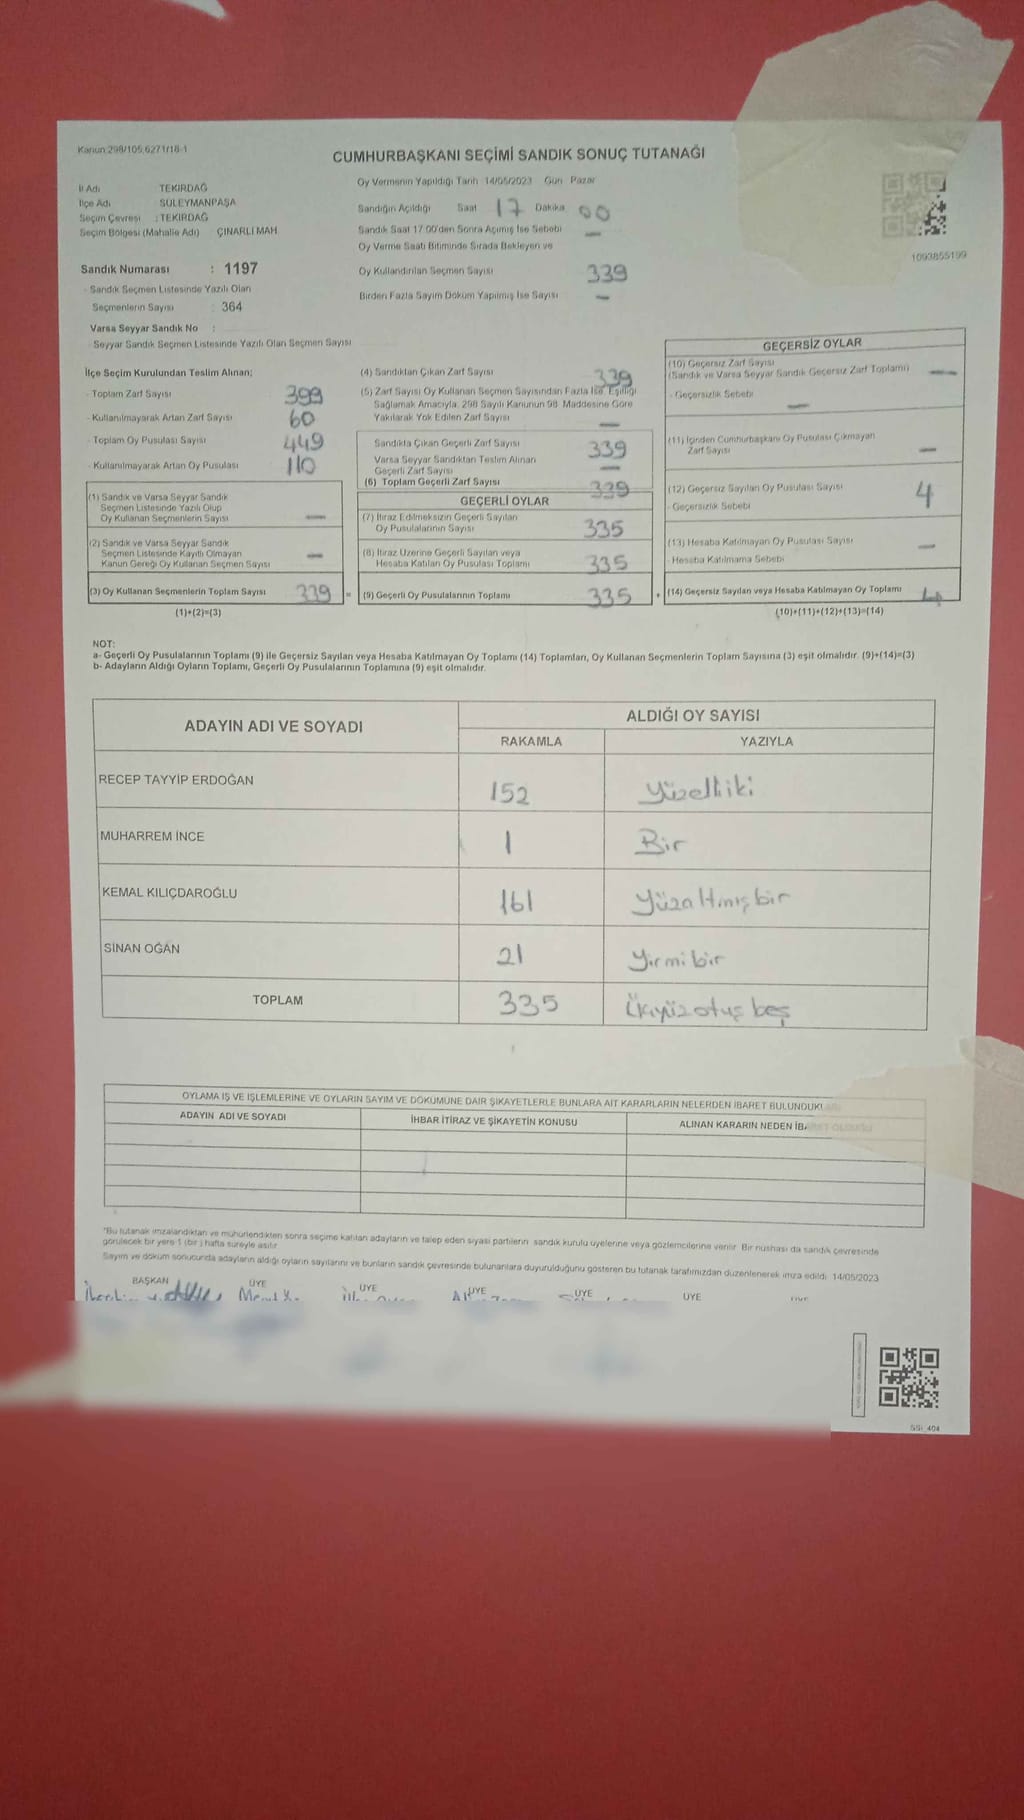 Kanun:298/105,6271/18-1
CUMHURBAŞKANI SEÇİMİ SANDIK SONUÇ TUTANAĞI
İl Adı TEKİRDAĞ
İlçe Adı SÜLEYMANPAŞA
Seçim Çevresi : TEKİRDAĞ
Seçim Bölgesi (Mahalle Adı) ÇINARLI MAH.
Oy Vermenin Yapıldığı Tarih 14/05/2023 Gün Pazar
Sandığın Açıldığı Saat 17 Dakika 00
Sandık Saat 17:00'den Sonra Açımış İse Sebebi –
Oy Verme Saati Bitiminde Sırada Bekleyen ve
Oy Kullandırılan Seçmen Sayısı 339
Birden Fazla Sayım Döküm Yapılmış İse Sayısı –
1093855199
Sandık Numarası : 1197
- Sandık Seçmen Listesinde Yazılı Olan
Seçmenlerin Sayısı : 364
Varsa Seyyar Sandık No :
- Seyyar Sandık Seçmen Listesinde Yazılı Olan Seçmen Sayısı
İlçe Seçim Kurulundan Teslim Alınan;
- Toplam Zarf Sayısı 399
- Kullanılmayarak Artan Zarf Sayısı 60
- Toplam Oy Pusulası Sayısı 449
- Kullanılmayarak Artan Oy Pusulası 110
(1) Sandık ve Varsa Seyyar Sandık
Seçmen Listesinde Yazılı Olup
Oy Kullanan Seçmenlerin Sayısı –
(2) Sandık ve Varsa Seyyar Sandık
Seçmen Listesinde Kayıtlı Olmayan
Kanun Gereği Oy Kullanan Seçmen Sayısı –
(3) Oy Kullanan Seçmenlerin Toplam Sayısı 339 =
(1)+(2)=(3)
(4) Sandıktan Çıkan Zarf Sayısı 339
(5) Zarf Sayısı Oy Kullanan Seçmen Sayısından Fazla İse, Eşitliği
Sağlamak Amacıyla, 298 Sayılı Kanunun 98. Maddesine Göre
Yakılarak Yok Edilen Zarf Sayısı –
Sandıkta Çıkan Geçerli Zarf Sayısı 339
Varsa Seyyar Sandıktan Teslim Alınan
Geçerli Zarf Sayısı –
(6) Toplam Geçerli Zarf Sayısı 339
GEÇERLİ OYLAR
(7) İtiraz Edilmeksizin Geçerli Sayılan
Oy Pusulalarının Sayısı 335
(8) İtiraz Üzerine Geçerli Sayılan veya
Hesaba Katılan Oy Pusulası Toplamı 335
(9) Geçerli Oy Pusulalarının Toplamı 335 +
GEÇERSİZ OYLAR
(10) Geçersiz Zarf Sayısı
(Sandık ve Varsa Seyyar Sandık Geçersiz Zarf Toplamı) –
- Geçersizlik Sebebi –
(11) İçinden Cumhurbaşkanı Oy Pusulası Çıkmayan
Zarf Sayısı –
(12) Geçersiz Sayılan Oy Pusulası Sayısı 4
- Geçersizlik Sebebi
(13) Hesaba Katılmayan Oy Pusulası Sayısı –
- Hesaba Katılmama Sebebi
(14) Geçersiz Sayılan veya Hesaba Katılmayan Oy Toplamı 4
(10)+(11)+(12)+(13)=(14)
NOT:
a- Geçerli Oy Pusulalarının Toplamı (9) ile Geçersiz Sayılan veya Hesaba Katılmayan Oy Toplamı (14) Toplamları, Oy Kullanan Seçmenlerin Toplam Sayısına (3) eşit olmalıdır. (9)+(14)=(3)
b- Adayların Aldığı Oyların Toplamı, Geçerli Oy Pusulalarının Toplamına (9) eşit olmalıdır.
ADAYIN ADI VE SOYADI ALDIĞI OY SAYISI
RAKAMLA YAZIYLA
RECEP TAYYİP ERDOĞAN 152 Yüzelliiki
MUHARREM İNCE 1 Bir
KEMAL KILIÇDAROĞLU 161 Yüzaltmışbir
SİNAN OĞAN 21 Yirmibir
TOPLAM 335 otuz beş
OYLAMA İŞ VE İŞLEMLERİNE VE OYLARIN SAYIM VE DÖKÜMÜNE DAİR ŞİKAYETLERLE BUNLARA AİT KARARLARIN NELERDEN İBARET BULUNDUK
ADAYIN ADI VE SOYADI İHBAR İTİRAZ VE ŞİKAYETİN KONUSU ALINAN KARARIN NEDEN İBARET OLDUĞU
*Bu tutanak imzalandıktan ve mühürlendikten sonra seçime katılan adayların ve talep eden siyasi partilerin sandık kurulu üyelerine veya gözlemcilerine verilir. Bir nüshası da sandık çevresinde
görülecek bir yere 1 (bir) hafta süreyle asılır.
Sayım ve döküm sonucunda adayların aldığı oyların sayılarını ve bunların sandık çevresinde bulunanlara duyurulduğunu gösteren bu tutanak tarafımızdan düzenlenerek imza edildi. 14/05/2023
BAŞKAN ÜYE ÜYE ÜYE ÜYE ÜYE
SSİ_404